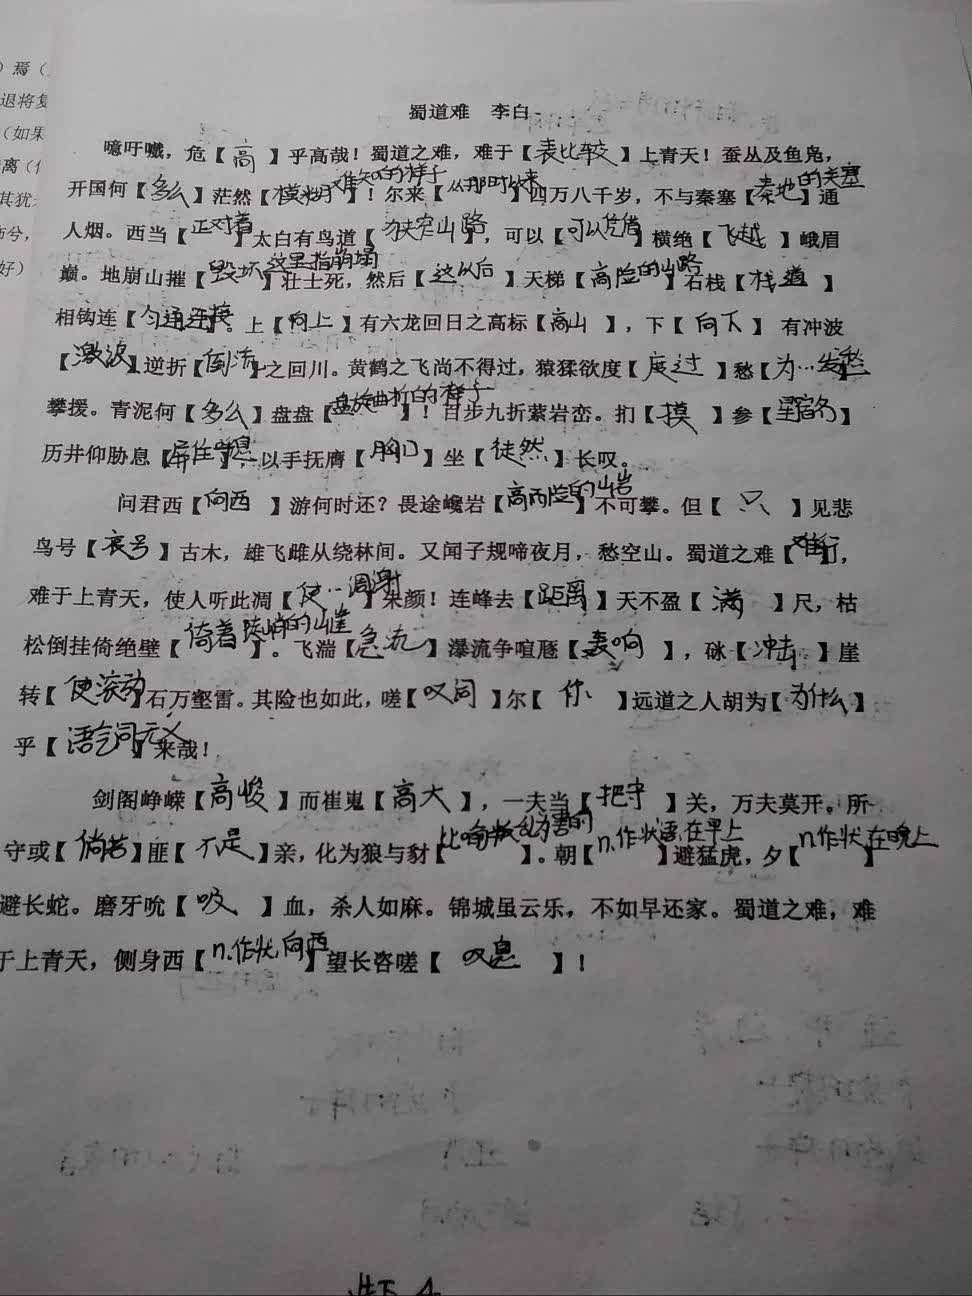 ）焉（
退将复
（如果
离（
其犹
兮，
好）
蜀道难 李白
噫吁嚱，危【高】乎高哉！蜀道之难，难于【表比较】上青天！蚕丛及鱼凫，
开国何【多么】茫然【模糊难知的样子】！尔来【从那时以来】四万八千岁，不与秦塞【秦地的关塞】通
人烟。西当【正对着】太白有鸟道【狭窄山路】，可以【可以凭借】横绝【飞越】峨眉
巅。地崩山摧【毁坏 这里指崩塌】壮士死，然后【这以后】天梯【高险的山路】石栈【栈道】
相钩连【勾通连接】。上【向上】有六龙回日之高标【高山】，下【向下】有冲波
【激波】逆折【倒流】之回川。黄鹤之飞尚不得过，猿猱欲度【度过】愁【为…发愁】
攀援。青泥何【多么】盘盘【盘旋曲折的样子】！百步九折萦岩峦。扪【摸】参【星宿名】
历井仰胁息【屏住呼吸】，以手抚膺【胸口】坐【徒然】长叹。
问君西【向西】游何时还？畏途巉岩【高而险的山岩】不可攀。但【只】见悲
鸟号【哀号】古木，雄飞雌从绕林间。又闻子规啼夜月，愁空山。蜀道之难【难行】，
难于上青天，使人听此凋【使…凋谢】朱颜！连峰去【距离】天不盈【满】尺，枯
松倒挂倚绝壁【倚着陡峭的山崖】。飞湍【急流】瀑流争喧豗【轰响】，砯【冲击】崖
转【使滚动】石万壑雷。其险也如此，嗟【叹词】尔【你】远道之人胡为【为什么】
乎【语气词无义】来哉！
剑阁峥嵘【高峻】而崔嵬【高大】，一夫当【把守】关，万夫莫开。所
守或【倘若】匪【不是】亲，化为狼与豺【比喻叛乱为害的】。朝【n.作状语,在早上】避猛虎，夕【n作状 在晚上】
避长蛇。磨牙吮【吸】血，杀人如麻。锦城虽云乐，不如早还家。蜀道之难，难
于上青天，侧身西【n.作状,向西】望长咨嗟【叹息】！